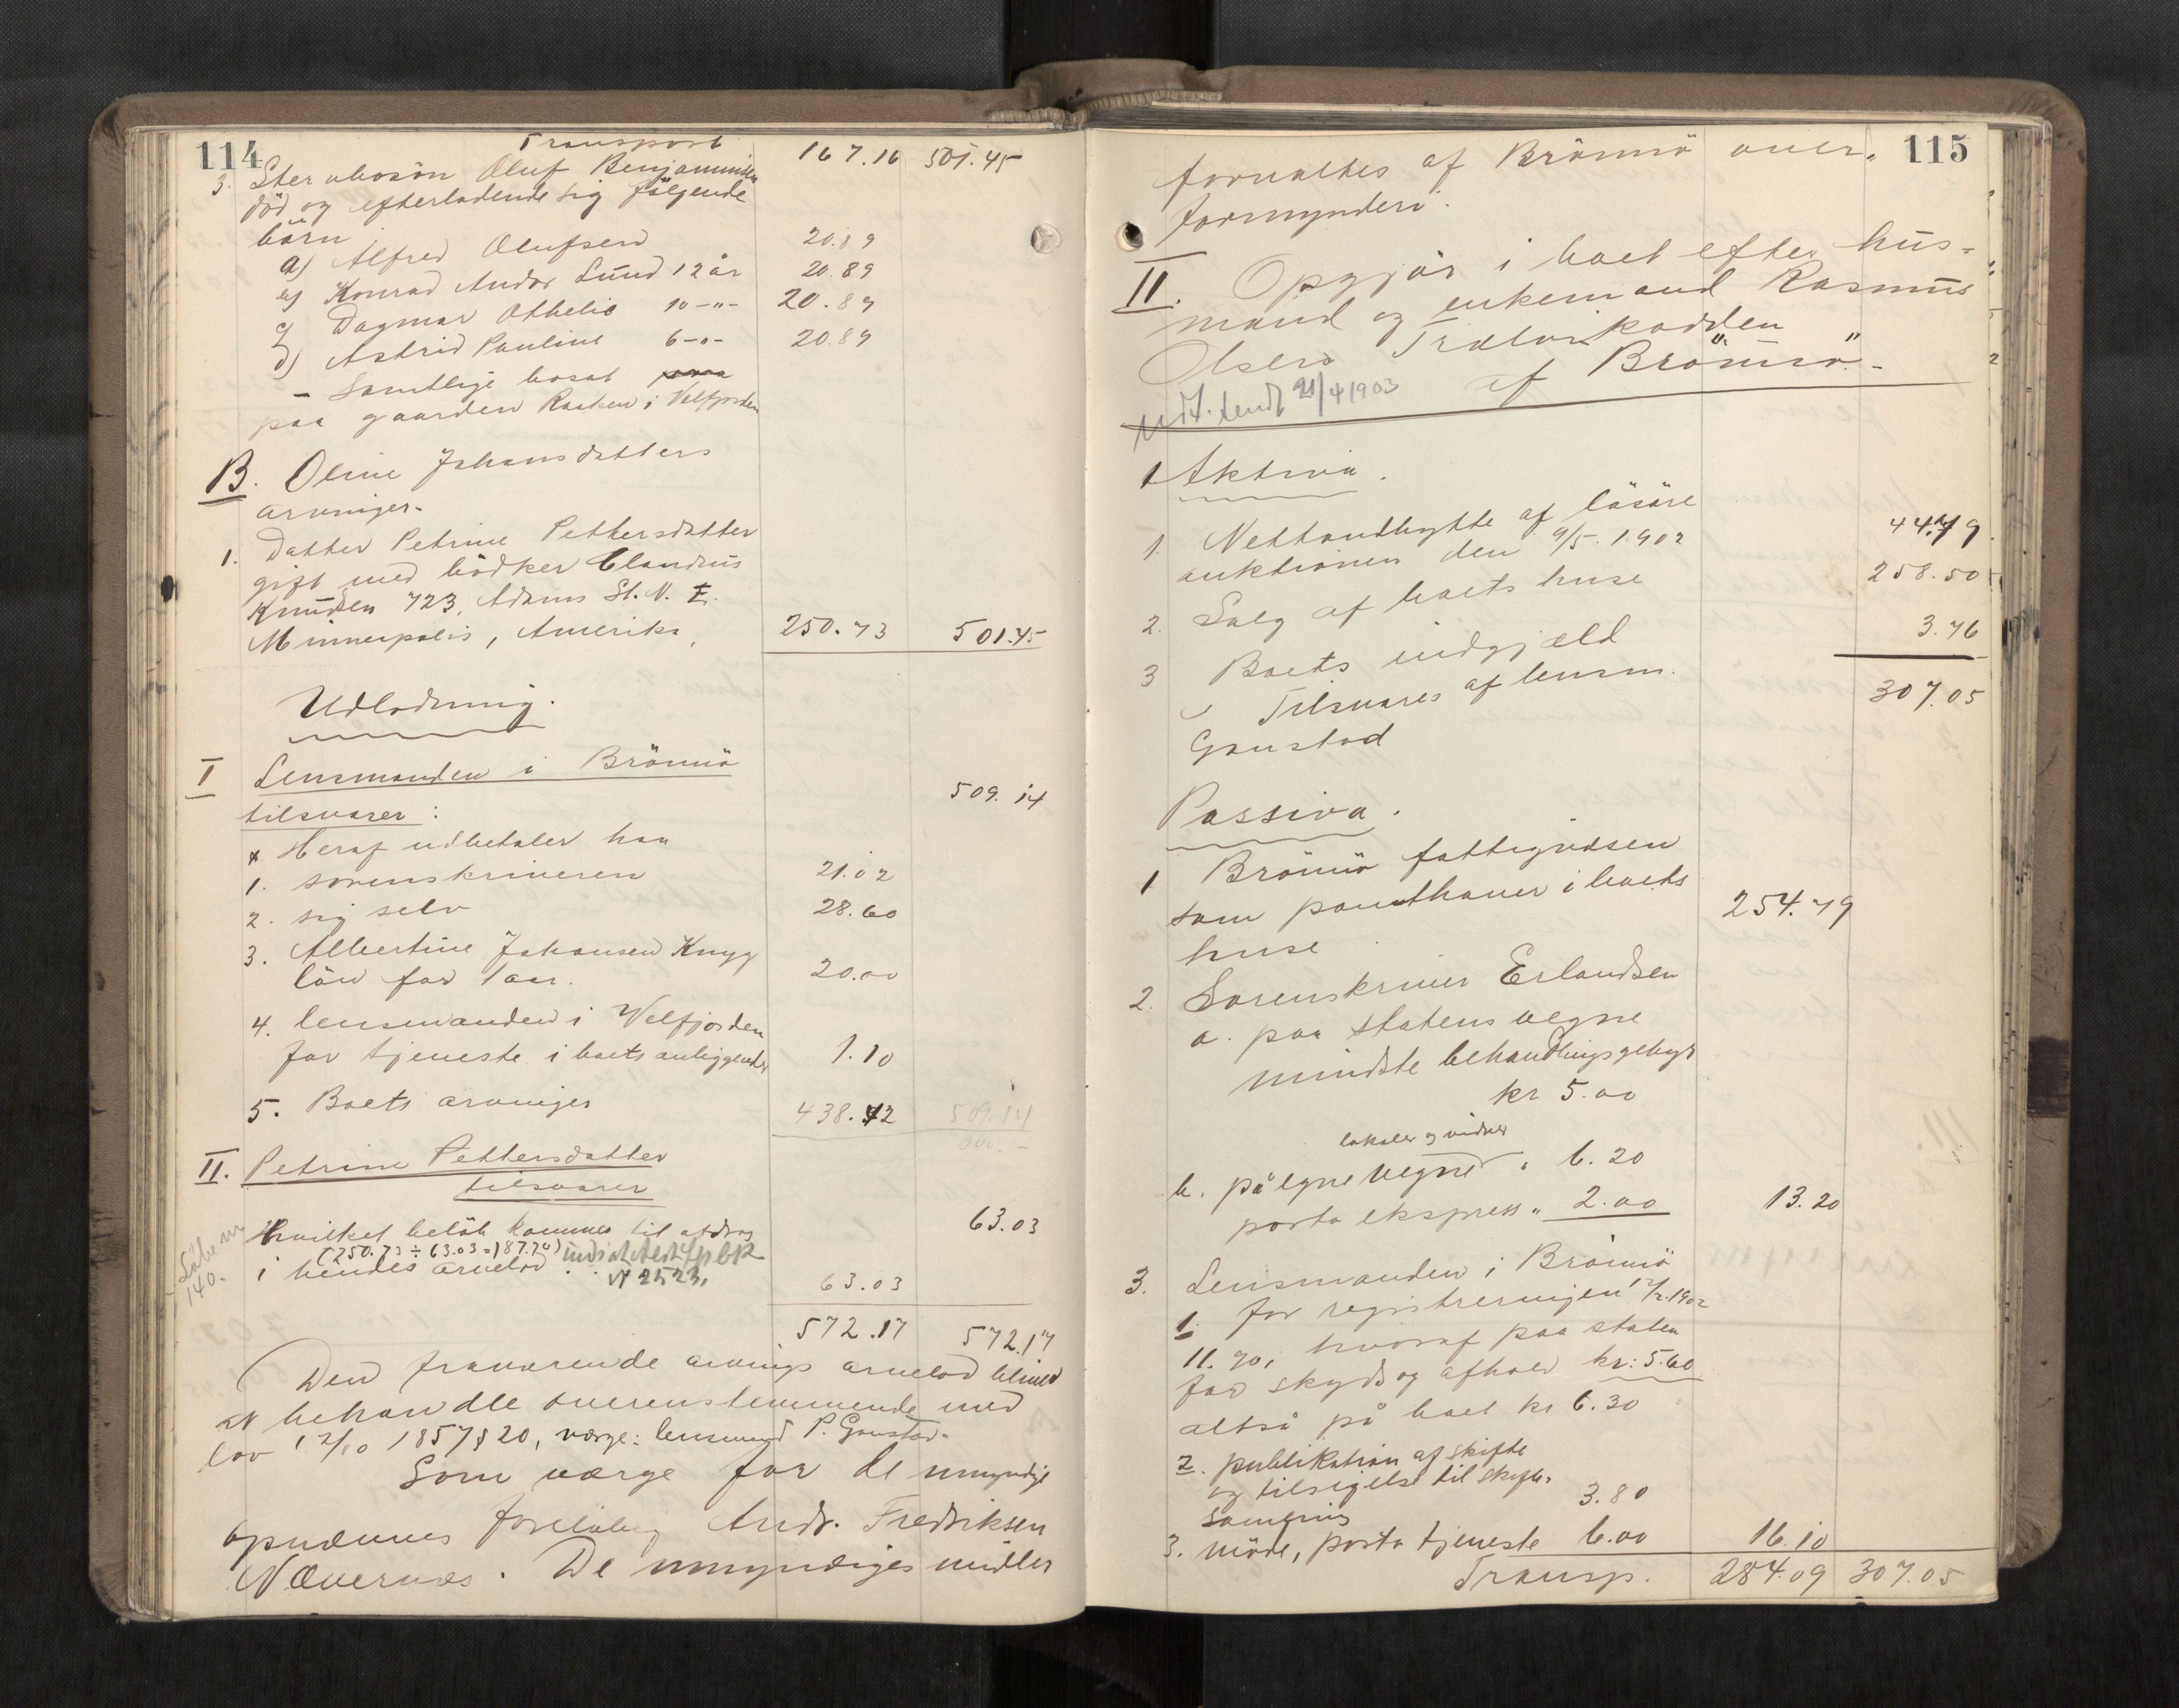 114
Transport 167.16 501.45
3. Oluf Benjaminsen
död og efterladende sig følgende
börn
a) Alfred Olufsen 20.89
b) Konrad Andor Lund 12 år 20.89
c) Dagmar Othelie 10 -"- 20.89
d) Astrid Pauline 6 -"- 20.89
- Samtlige bosat
paa gaarden i Velfjorden
B. Oline Johansdatters
arvinger.
1. Datter Petrine Pettersdatter
gift med bödker Claudius
Knudsen 723, Adams St. N. E.
Minnepolis, Amerika, 250.73 501.45
Udlodning.
I Lensmanden i Brönnö
tilsvarer: 509.14
Heraf udbetaler han
1. sorenskriveren 21.02
2. sig selv 28.60
3. Albertine Johansen Kvig
lön for 1 aar. 20.00
4. lensmanden i Velfjorden
for tjeneste i boets anliggender 1.10
5. Boets arvinger 438.42 509.14
II. Petrine Pettersdatter
tilsvarer 63.03
Hvilket belöb kommer til afdrag
(250.73 ÷ 63.03 = 187.70)
i hendes arvelod. 63.03
№ 2523.
Löbe nr
140.
572.17 572.17
Den fraværende arvings arvelod bliver
at behandle overensstemmende med
lov 12/10 1857 § 20, værge: lensmand P. Gaustad.
Som værge for de umyndige
opnævnes foreløbig Andr. Fredriksen
Nævernes. De umyndiges midler
115
forvaltes af Brönnö over-
formynderi.
II. Opgjör i boet efter hus-
mand og enkemand Rasmus
Olsen
af Brönnö.-
21/4 1903
Aktiva.
1. Nettoudbytte af lösöre
auktionen den 9/5. 1902 44.79
2. Salg af boets huse 258.50
3 Boets indgjæld 3.76
Tilsvares af lensm. 307.05
Gaustad
Passiva.
1 Brönnö fattigvæsen
som panthaver i boets 254.79
huse
2. Sorenskriver Erlandsen
a. paa statens vegne
mindste behandlingsgebyr
kr 5.00
lokaler og vidner
b. på egne vegne " 6.20
porto ekspress " 2.00 13.20
3. Lensmanden i Brönnö
1. for registreringen 12/2.1902
11.90, hvoraf paa staten
for skyds og afhold kr: 5.60
altså på boet kr 6.30
2. publikation af skifte
og tilsigelse til skifte-
samling 3.80
3. möde, porto tjeneste 6.00 16.10
Transp. 284.09 307.05